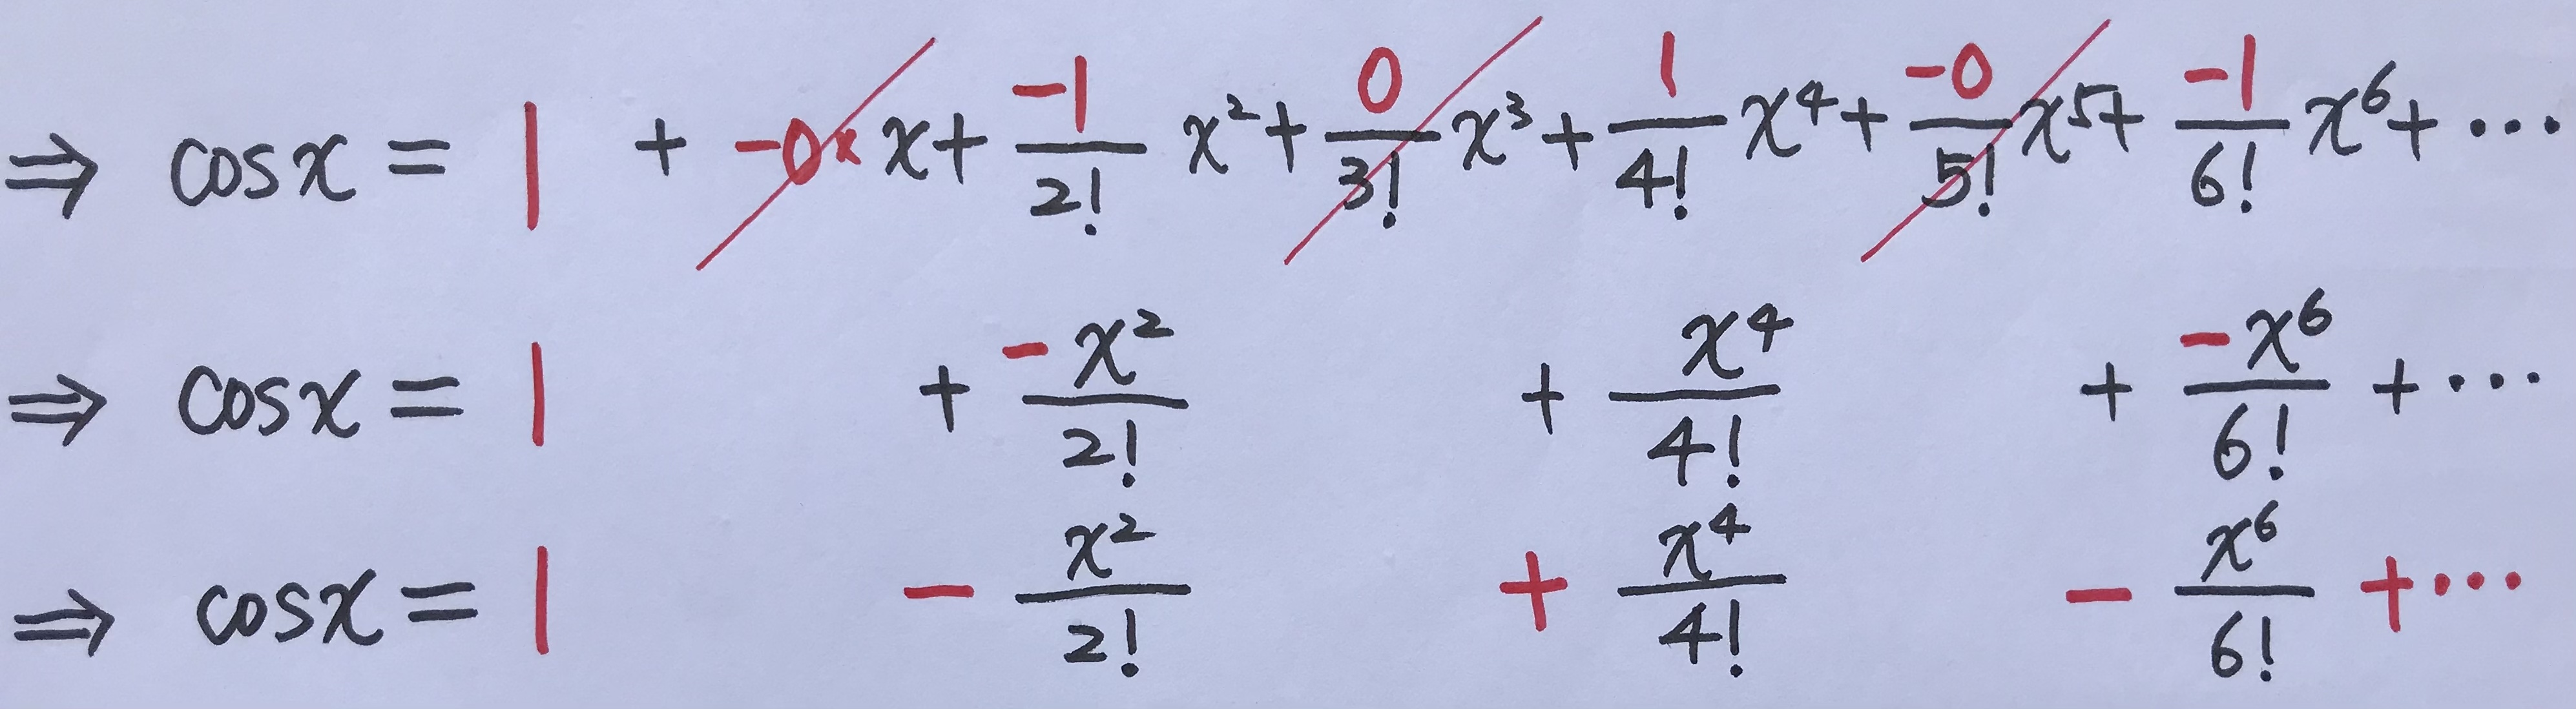 ⇒ cosx = 1 + -0× x + -1/2! x² + 0/3! x³ + 1/4! x⁴ + -0/5! x⁵ + -1/6! x⁶ + ⋯
⇒ cosx = 1 + -x²/2! + x⁴/4! + -x⁶/6! + ⋯
⇒ cosx = 1 - x²/2! + x⁴/4! - x⁶/6! + ⋯